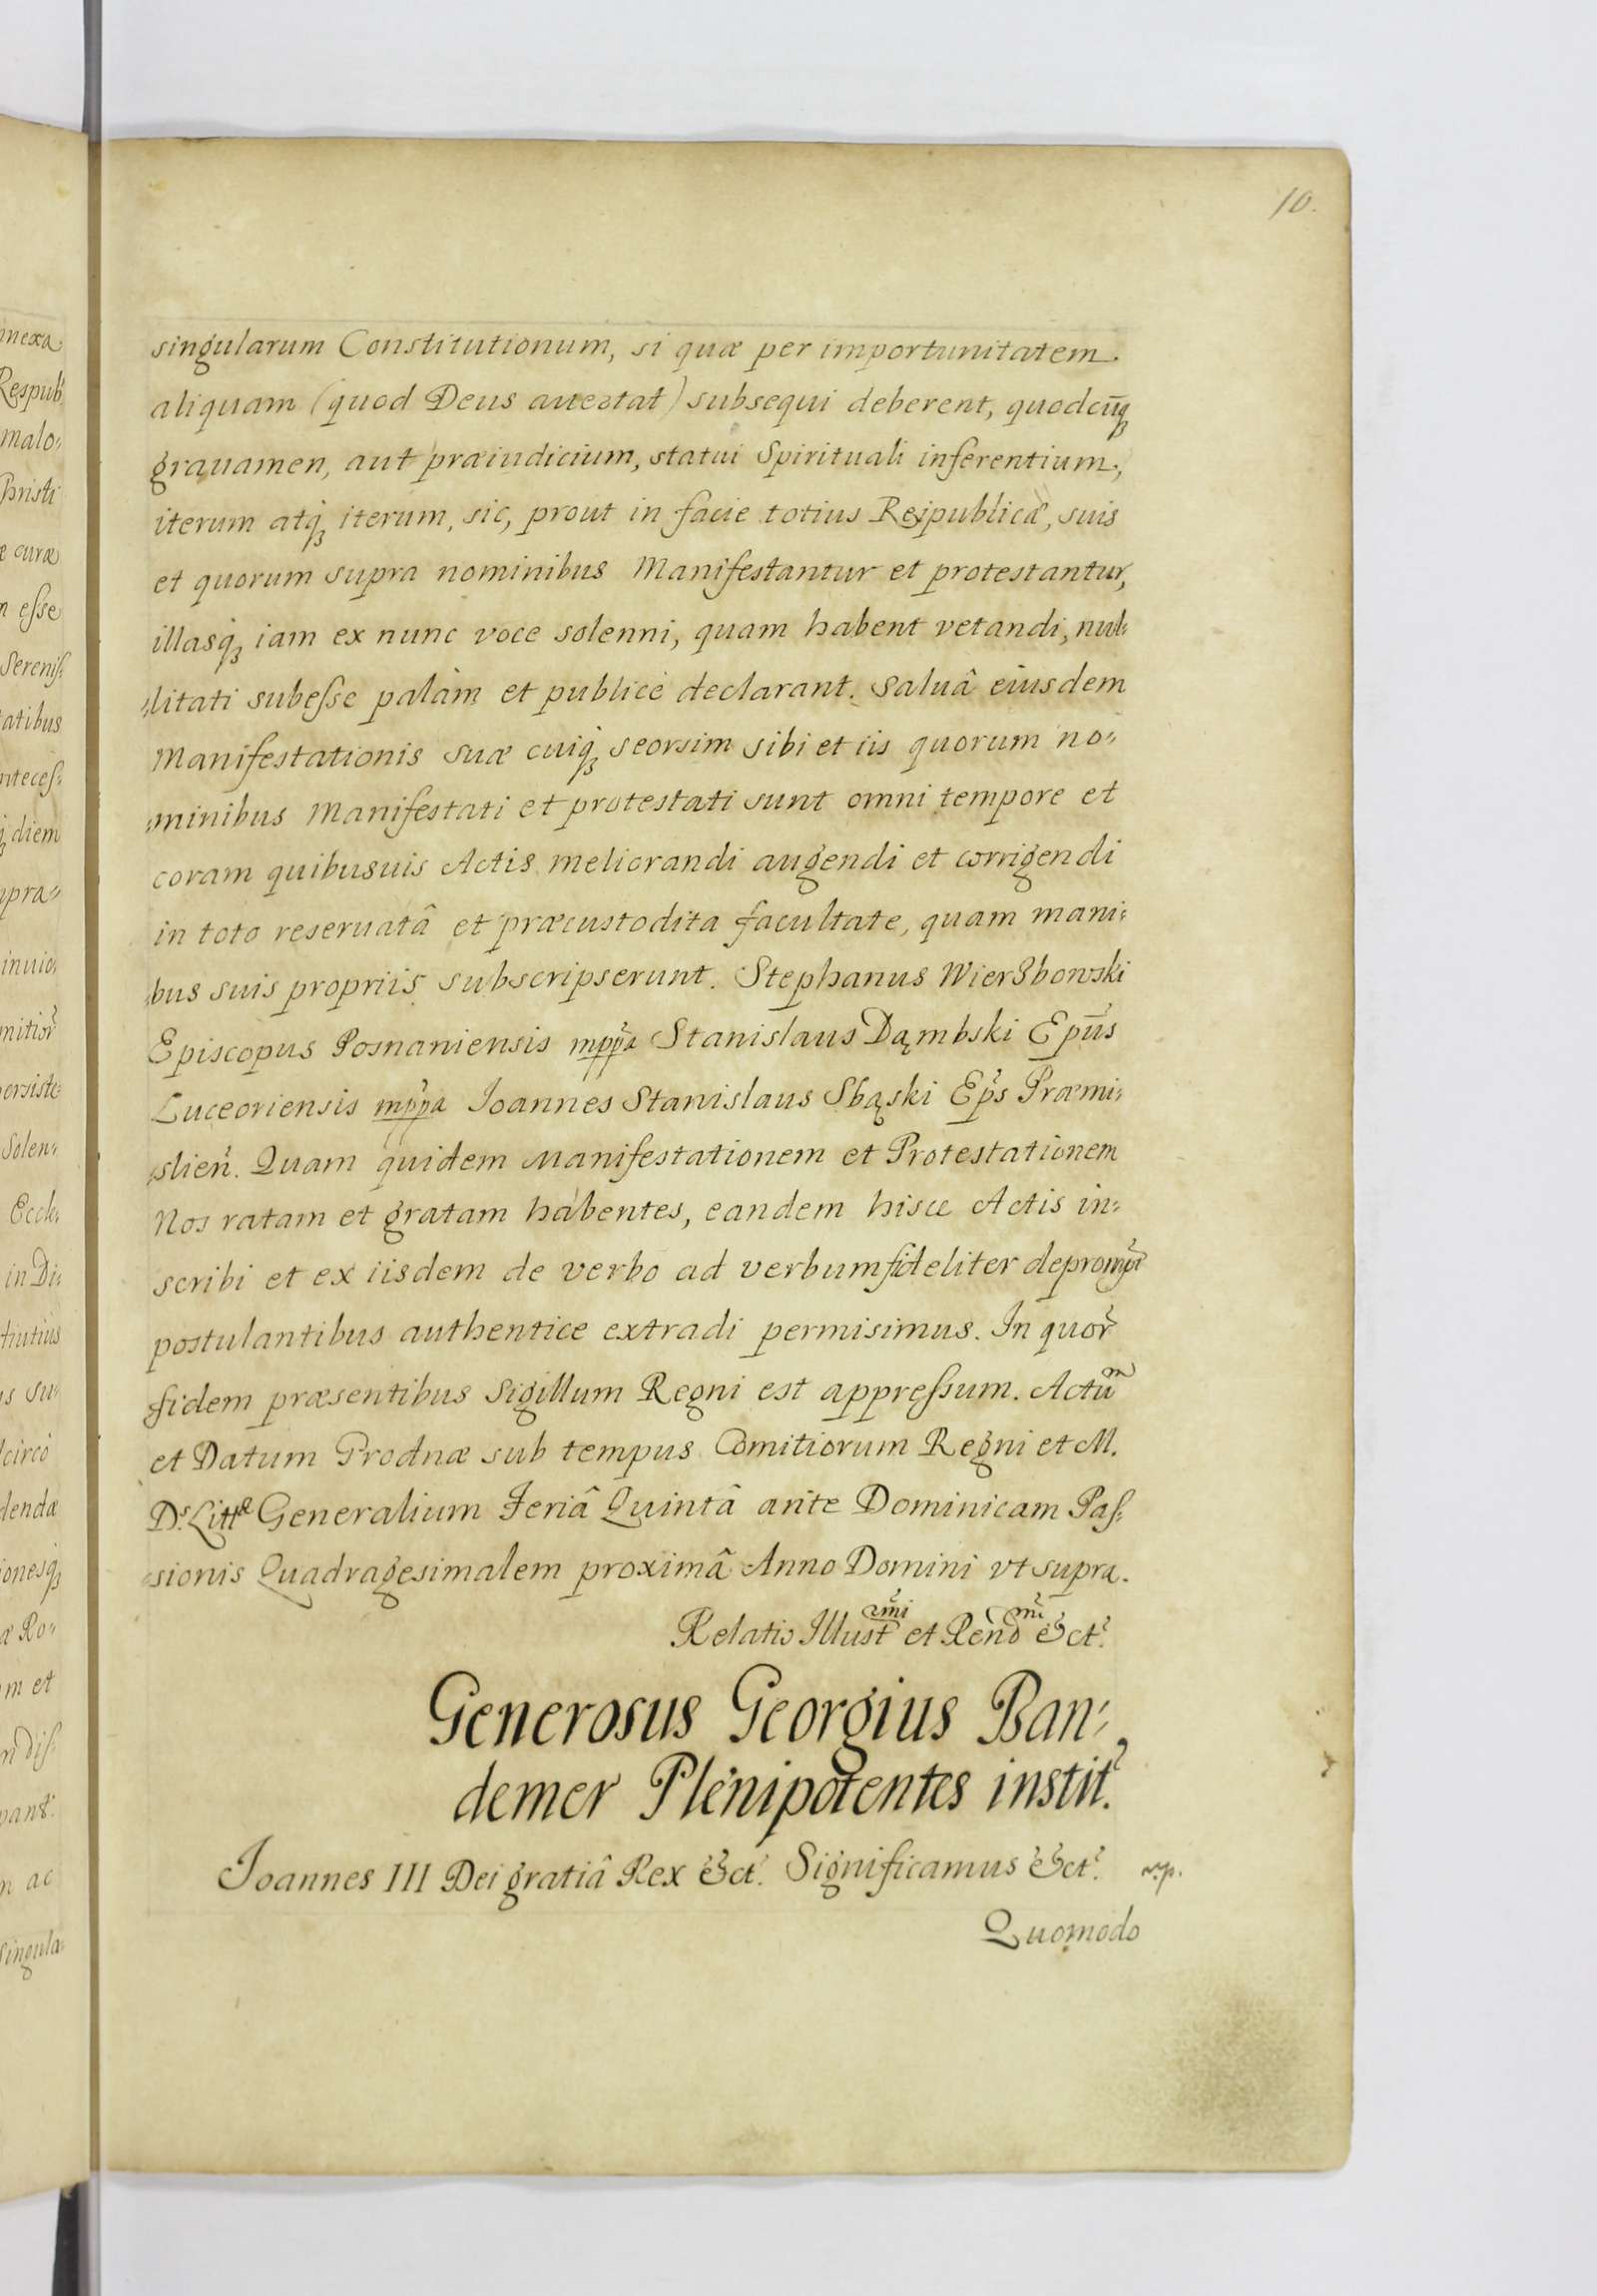 10.
singularum Constitutionum, si quæ per importunitatem
aliquam (quod Deus auertat) subsequi deberent, quodcūq́ꝫ
grauamen, aut præiudicium, statui Spirituali inferentium,
iterum atq́ꝫ iterum, sic, prout in facie totius Reipublicæ, suis
et quorum supra nominibus Manifestantur et protestantur,
illasq́ꝫ iam ex nunc voce solenni, quam habent vetandi, nul-
litati subesse palàm et publicè declarant. Saluâ eiusdem
Manifestationis suæ cuiq́ꝫ seorsim sibi et iis quorum no-
minibus Manifestati et protestati sunt omni tempore et
coram quibusuis Actis meliorandi augendi et corrigendi
in toto reseruatâ et præcustodita facultate, quam mani-
bus suis propriis subscripserunt. Stephanus Wierzbowski
Episcopus Posnaniensis mppa Stanislaus Dąmbski Epūs
Luceoriensis mppa Ioannes Stanislaus Sbąski Eps Præmi-
slien̄. Quam quidem Manifestationem et Protestationem
Nos ratam et gratam habentes, eandem hisce Actis in-
scribi et ex iisdem de verbo ad verbum fideliter deprompt
postulantibus authentice extradi permisimus. In quor
fidem præsentibus Sigillum Regni est appressum. Actūm
et Datum Grodnæ sub tempus Comitiorum Regni et M.
D. Littæ Generalium Feriâ Quintâ ante Dominicam Pas-
sionis Quadragesimalem proximâ Anno Domini vt supra.
Relatio Illustrmi et Rendmi &ct.
Generosus Georgius Ban-
demer Plenipotentes instit.
Ioannes III Dei gratiâ Rex &ct. Significamus &ct.
Quomodo